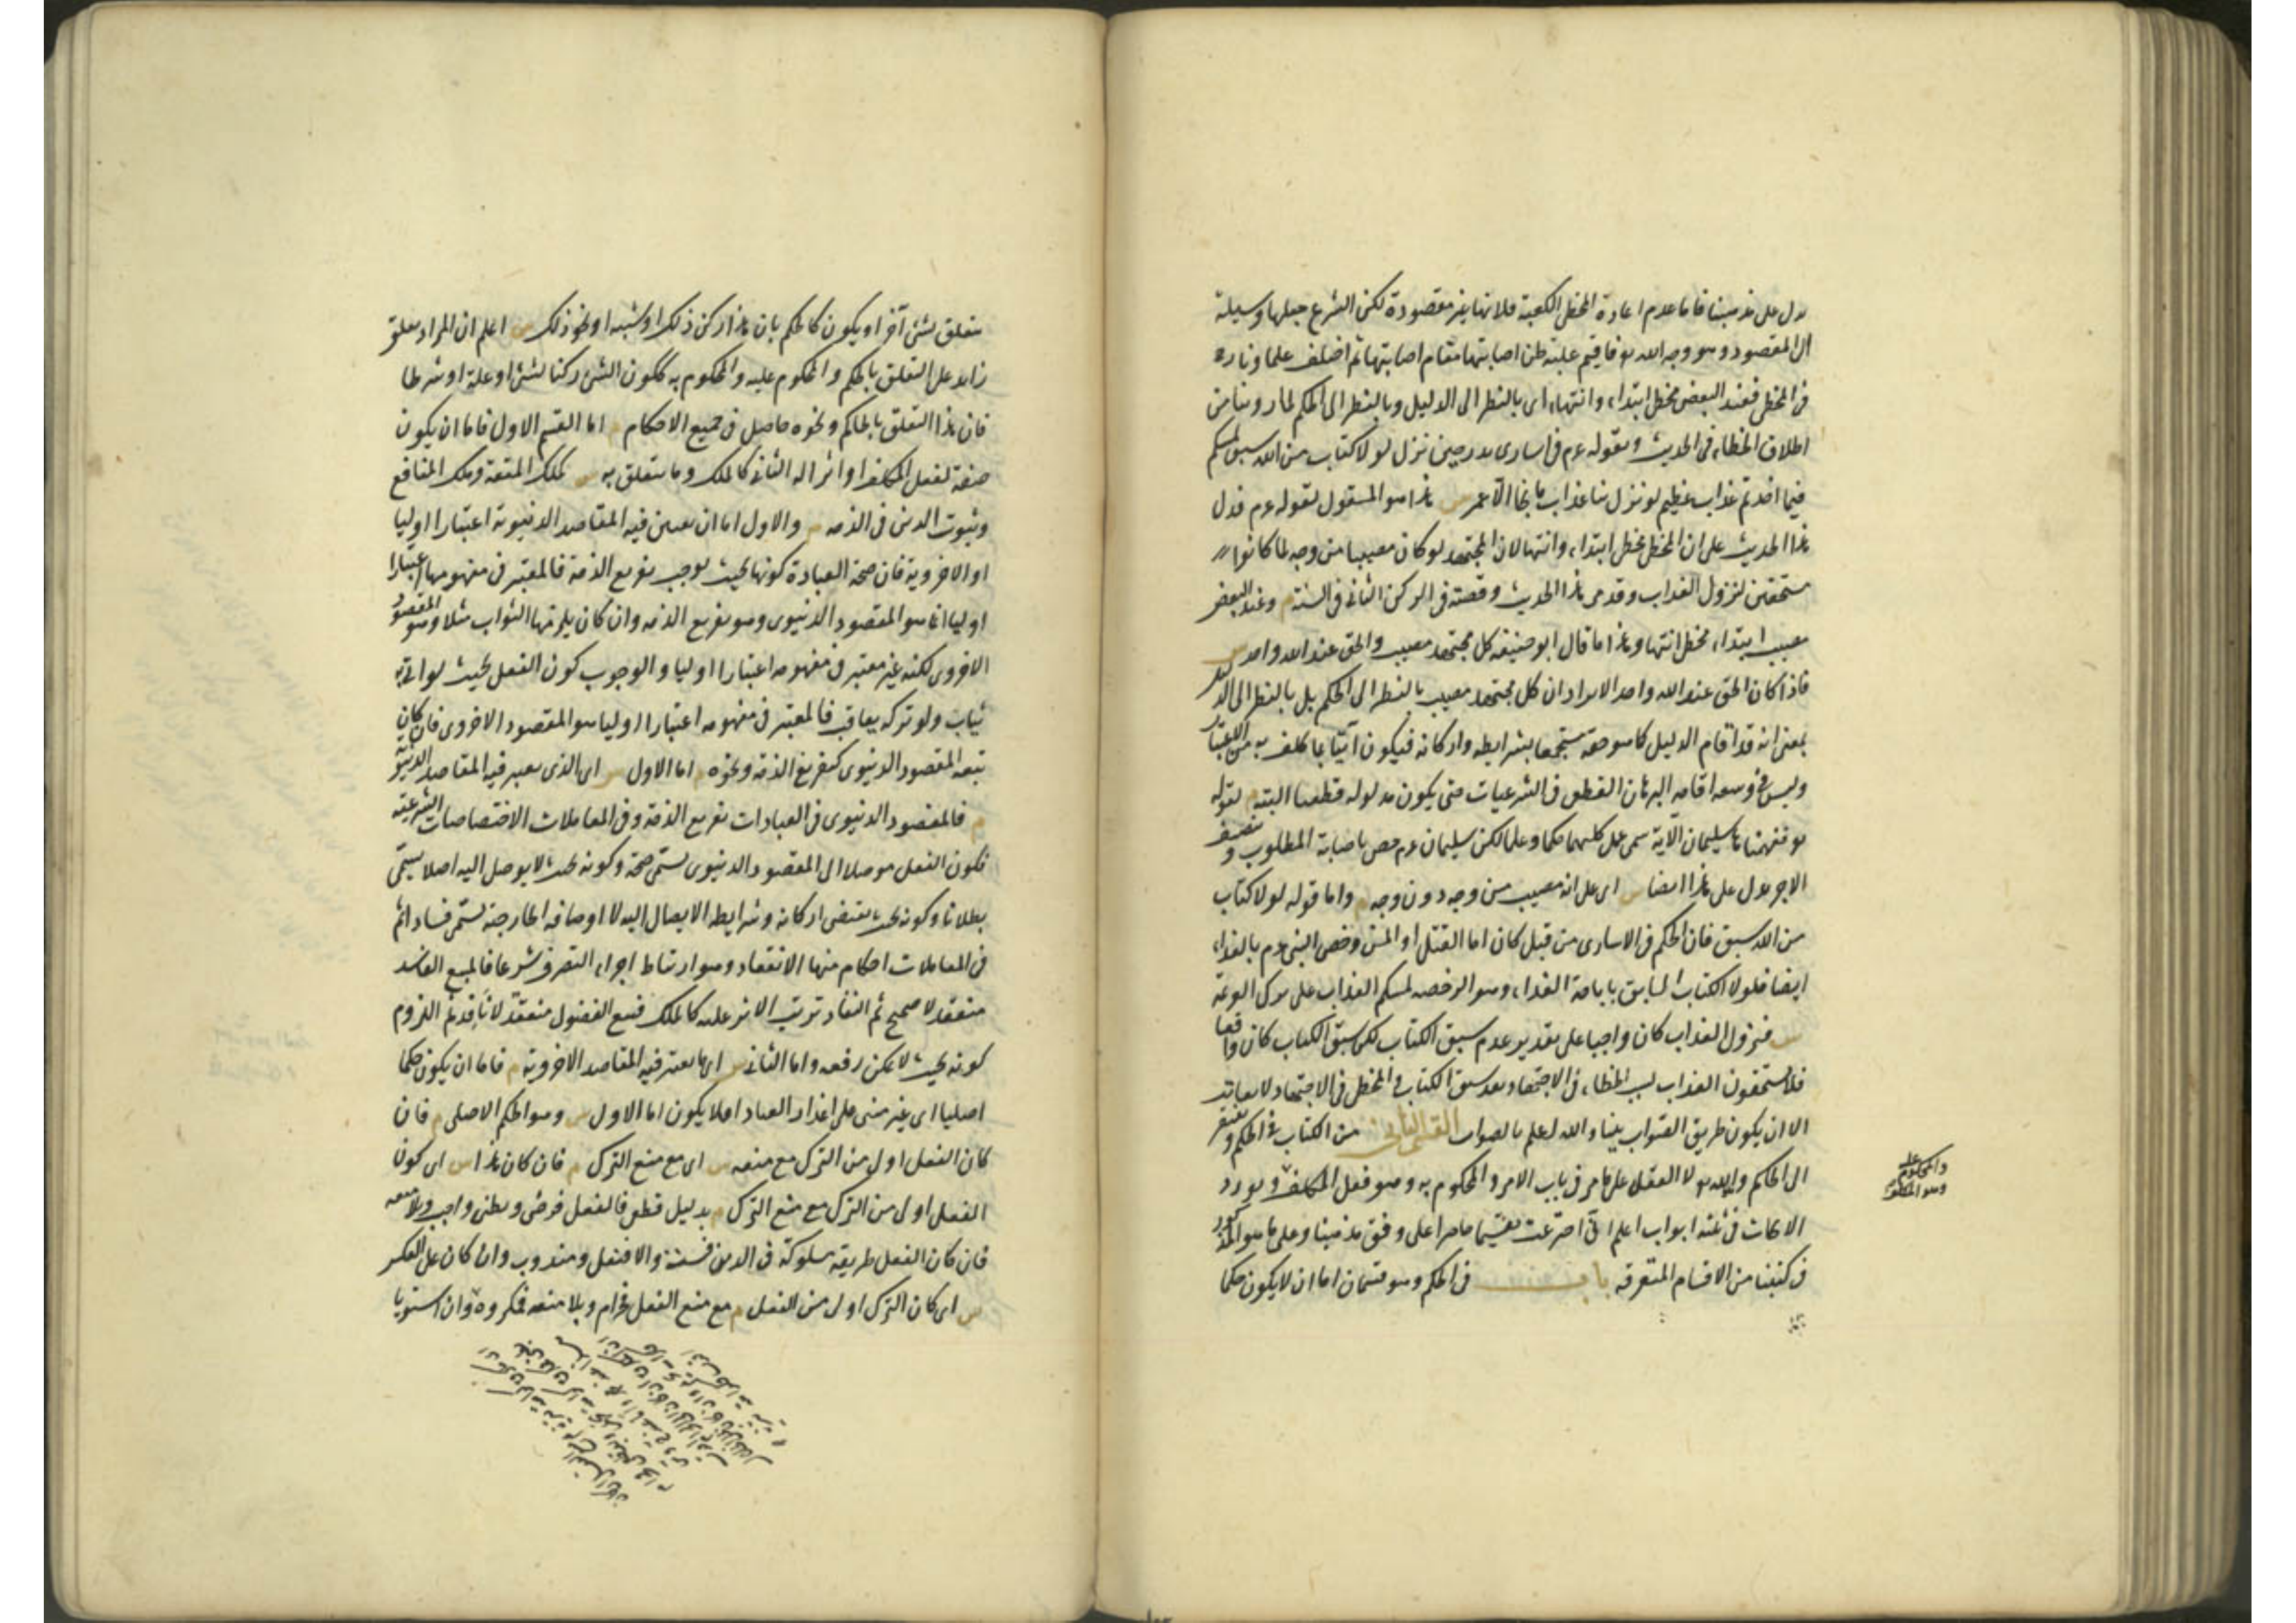 يدل على مذهبنا فاما عدم اعادة المخطئ الكعبة فلانها غير مقصودة لكن الشرع جعلها وسيلة
الى المقصود وهو وجه الله تع فاقيم غلبة ظن اصابتها مقام اصابتها ثم اختلف علماؤنا رح
فى المخطئ فعند البعض مخطئ ابتداء وانتهاء اى بالنظر الى الدليل وبالنظر الى الحكم لما روينا من
اطلاق الخطاء فى الحديث ولقوله عم فى اسارى بدر حين نزل لولا كتاب من الله سبق لمسكم
فيما اخذتم عذاب عظيم لو نزل بنا عذاب ما نجا الا عمر س هذا هو المنقول لقوله عم فدل
هذا الحديث على ان المخطئ مخطئ ابتداء وانتهاء لان المجتهد لو كان مصيبا من وجه لما كانوا
مستحقين لنزول العذاب وقد مر هذا الحديث وقصته فى الركن الثانى فى السنة م وعند البعض
مصيب ابتداء مخطئ انتهاء وهذا ما قال ابو حنيفة كل مجتهد مصيب والحق عند الله واحد س
فاذا كان الحق عند الله واحد الا يراد ان كل مجتهد مصيب بالنظر الى الحكم بل بالنظر الى الدليل
بمعنى انه قد اقام الدليل كما هو حقه مستجمعا بشرايطه واركانه فيكون آتيا بما كلف به من الاعتبار
وليس فى وسعه اقامة البرهان القطعى فى الشرعيات حتى يكون مدلوله قطعيا البتة م لقوله
تع ففهمناها سليمان الآية سمى عمل كليهما حكما وعلما لكن سليمان عم خص باصابة المطلوب وتنصيف
الاجر يدل على هذا ايضا س اى على انه مصيب من وجه دون وجه م واما قوله لولا كتاب
من الله سبق فان الحكم فى الاسارى من قبل كان اما القتل او المن ورخص النبى عم بالفداء
ايضا فلولا الكتاب السابق باباحة الفداء وهو الرخصة لمسكم العذاب على ترك العزيمة
س فنزول العذاب كان واجبا على تقدير عدم سبق الكتاب لكن سبق الكتاب كان واقعا
فلا يستحقون العذاب بسبب الخطاء فى الاجتهاد بعد سبق الكتاب م والمخطئ فى الاجتهاد لا يعاقب
الا ان يكون طريق الصواب بينا والله اعلم بالصواب القسم الثانى من الكتاب فى الحكم ويفتقر
الى الحاكم وهو الله تع لا العقل على ما مر فى باب الامر والمحكوم به وهو فعل المكلف ونورد
الابحاث فى ثلثة ابواب اعلم انى اخترعت تقسيما حاصرا على وفق مذهبنا وعلى ما هو المذكور
فى كتبنا من الاقسام المتفرقة باب فى الحكم وهو قسمان اما ان لا يكون حكما
والمحكوم عليه
وهو المكلف
بتعلق شئ بشئ آخر او يكون كالحكم بان هذا ركن ذلك او سببه او نحو ذلك س اعلم ان المراد بتعلق
زايد على التعلق بالحكم والمحكوم عليه والمحكوم به ككون الشئ ركنا لشئ او علة او شرطا
فان هذا التعلق بالحاكم ونحوه حاصل فى جميع الاحكام م اما القسم الاول فاما ان يكون
صفة لفعل المكلف او اثرا له الثانى كالملك وما يتعلق به س كملك المتعة وملك المنافع
وثبوت الدين فى الذمة م والاول اما ان يعتبر فيه المقاصد الدنيوية اعتبارا اوليا
او الاخروية فان صحة العبادة كونها بحيث يوجب تفريغ الذمة فالمعتبر فى مفهومها اعتبارا
اوليا انما هو المقصود الدنيوى وهو تفريغ الذمة وان كان يلزمها الثواب مثلا وهو المقصود
الاخروى لكنه غير معتبر فى مفهومه اعتبارا اوليا والوجوب كون الفعل بحيث لو اتى به
يثاب ولو تركه يعاقب فالمعتبر فى مفهومه اعتبارا اوليا هو المقصود الاخروى فان كان
يتبعه المقصود الدنيوى كتفريغ الذمة ونحوه م اما الاول س اى الذى يعتبر فيه المقاصد الدنيوية
م فالمقصود الدنيوى فى العبادات تفريغ الذمة وفى المعاملات الاختصاصات الشرعية
فكون الفعل موصلا الى المقصود الدنيوى يسمى صحة وكونه بحيث لا يوصل اليه اصلا يسمى
بطلانا وكونه بحيث يقتضى اركانه وشرايطه الايصال اليه لا اوصافه الخارجية يسمى فسادا ثم
فى المعاملات احكام منها الانعقاد وهو ارتباط اجزاء التصرف شرعا فالبيع الفاسد
منعقد لا صحيح ثم النفاذ ترتب الاثر عليه كالملك فبيع الفضولى منعقد لا نافذ ثم اللزوم
كونه بحيث لا يمكن رفعه واما الثانى س اى ما يعتبر فيه المقاصد الاخروية م فاما ان يكون حكما
اصليا اى غير مبنى على اعذار العباد او لا يكون اما الاول س وهو الحكم الاصلى م فان
كان الفعل اولى من الترك مع منعه س اى مع منع الترك م فان كان هذا س اى كون
الفعل اولى من الترك مع منع الترك م بدليل قطعى فالفعل فرض وبظنى واجب وبلا منعه
فان كان الفعل طريقة مسلوكة فى الدين فسنة والا فنفل ومندوب وان كان على العكس
س اى كان الترك اولى من الفعل م مع منع الفعل فحرام وبلا منعه فمكروه وان استويا